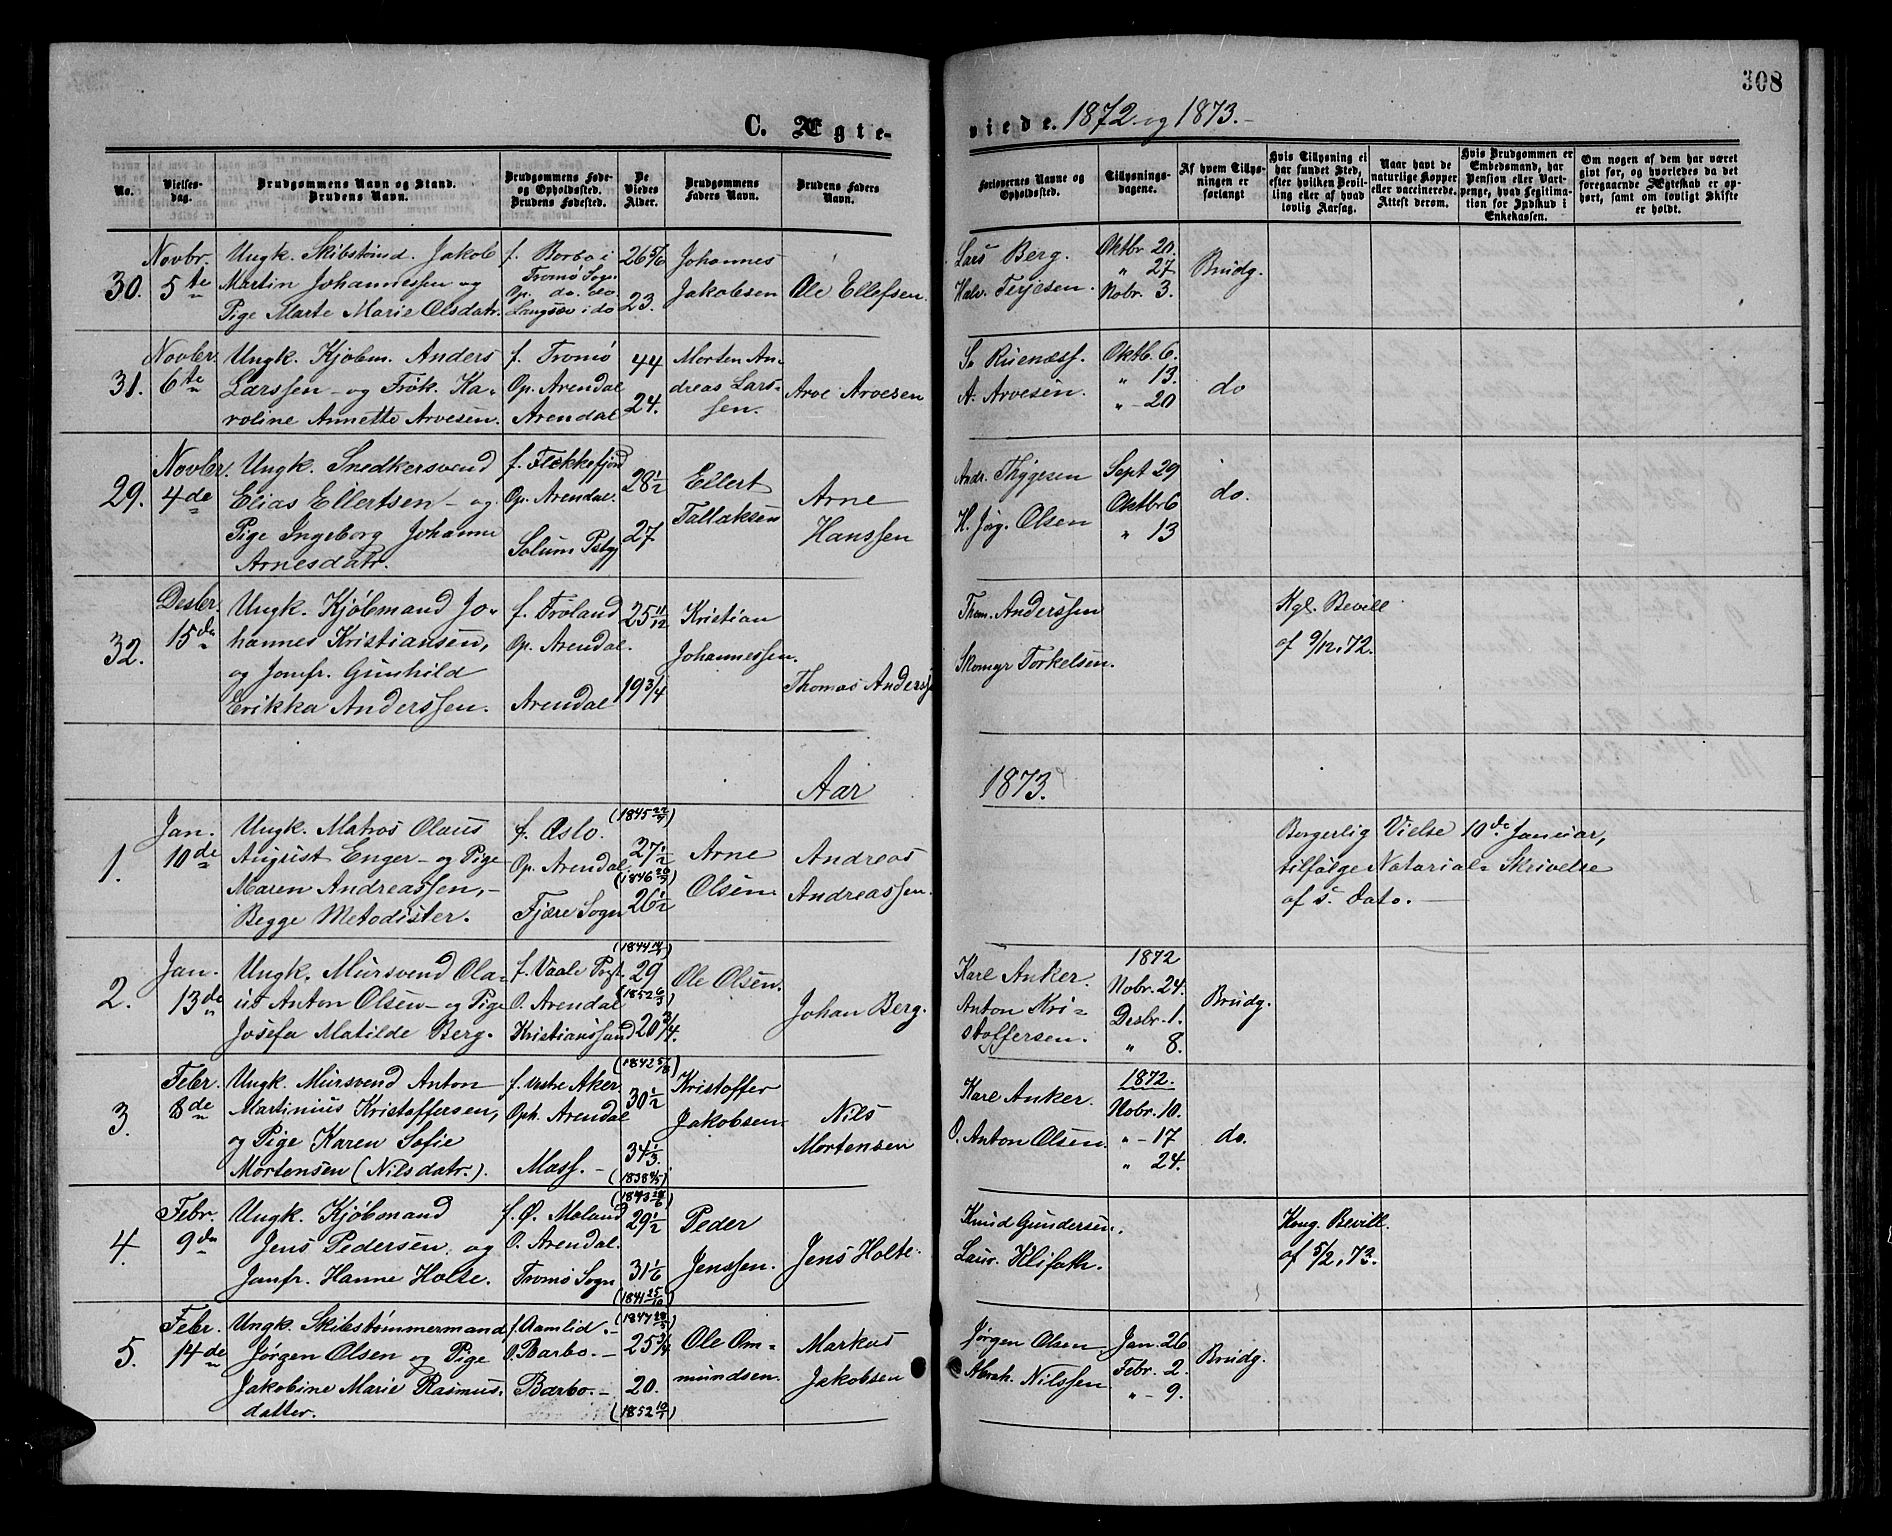 308
C. Ægte-
viede. 1872 og 1873.-
No.
Vielses-
dag.
Brudgommens Navn og Stand.
Brudens Navn.
Brudgommens Føde-
og Opholdssted.
Brudens Fødested.
De
Viedes
Alder.
Brudgommens
Faders Navn.
Brudens Faders
Navn.
Forlovernes Navne og
Opholdssted.
Tillysnings-
dagene.
Af hvem Tillys-
ningen er
forlangt
Hvis Tillysning ei
har fundet Sted,
efter hvilken Bevil-
ling eller af hvad
lovlig Aarsag.
Naar havt de
naturlige Kopper
eller vaccinerede.
Attest derom.
Hvis Brudgommen er
Embedsmand, har
Pension eller Vart-
penge, hvad Legitima-
tion for Indskud i
Enkekassen.
Om nogen af dem har været
givt før, og hvorledes da det
foregaaende Ægteskab er op-
hørt, samt om lovligt Skifte
er holdt.
30.
Novbr.
5te
Ungk. Skibstømd. Jakob
Martin Johannessen og
Pige Marte Marie Olsdatr.
f. Barbo i
Tromø Sogn
Op. do. do.
Langsæv i do
26 5/6
23.
Johannes
Jakobsen
Ole Ellefsen.
Lars Berg.
Halv. Terjesen.
Oktbr. 20.
" 27.
Nobr. 3.
Brudg.
31.
Novbr.
6te
Ungk. Kjøbm. Anders
Larssen - og Frøk. Ka-
roline Annette Arvesen.
f. Tromø
Op. Arendal
Arendal
44
24.
Morten An-
dreas Lars-
sen.
Arve Arvesen
S. Ruenæss.
A. Arvesen.
Oktb. 6.
" 13.
" - 20
do
29.
Novbr.
4de
Ungk. Snedkersvend
Elias Ellertsen - og
Pige Ingeborg Johanne
Arnesdatr.
f. Flekkefjord
Op. Arendal.
Solum Pstgj
28 1/2
27
Ellert
Tallaksen
Arne
Hanssen
Andr. Thygesen
H. Jørg. Olsen
Sept 29
Oktbr 6
" 13
do.
32.
Desbr.
15de
Ungk. Kjøbmand Jo-
hannes Kristiansen,
og Jomfr. Gunhild
Erikka Anderssen.
f. Froland
Op. Arendal.
Arendal
25 11/12
19 3/4
Kristian
Johannessen.
Thomas Anderss
Thom. Anderssen
Skomgr Torkelsen.
Kgl. Bevill
af 9/12. 72.
Aar
1873.
1.
Jan.
10de
Ungk. Matros Olaus
August Enger - og Pige
Maren Andreassen, -
Begge Metodister.
f. Oslo.
Op. Arendal.
Fjære Sogn
(1845 22/7)
27 1/2
(1846 20/7)
26 1/2
Arne
Olsen.
Andreas
Andreassen.
Borgerlig Vielse 10de Januar,
tilfølge Notarial- Skrivelse
af s. Dato.
2.
Jan.
13de
Ungk. Mursvend Ola-
us Anton Olsen - og Pige
Josefa Matilde Berg.
f. Vaale Pgt.
O. Arendal
Kristianssand
29
20 3/4.
Ole Olsen.
Johan Berg.
Karl Anker.
Anton Kri-
stoffersen.
1872
Nobr. 24.
Desbr. 1.
" 8.
Brudg.
3.
Febr.
8de
Ungk. Mursvend Anton
Martinius Kristoffersen,
og Pige Karen Sofie
Mortensen (Nilsdatr.).
f. Vestre Aker.
Oph. Arendal
Moss. -
30 1/2
34 1/3.
Kristoffer
Jakobsen
Nils
Mortensen
Karl Anker.
O. Anton Olsen.
1872.
Nobr. 10.
" - 17
" 24.
do.
4.
Febr.
9de
Ungk. Kjøbmand
Jens Pedersen og
Jomfr. Hanne Holte.
f. Ø. Moland
O. Arendal.
Tromø Sogn
29 1/2
31 1/6
(1841 25/10)
Peder
Jenssen.
Jens Holte.
Knud Gundersen.
Laur. Klifoth.
Kong. Bevill.
af 5/2. 73.
5.
Febr.
14de
Ungk. Skibstømmermand
Jørgen Olsen og Pige
Jakobine Marie Rasmus-
datter.
f. Aamlid. -
O. Barbo. -
Barbo. -
25 3/4
20.
(1852 10/1)
Ole Om-
mundsen.
Markus
Jakobsen
Jørgen Olsen
Abrah. Nilssen
Jan. 26
Febr. 2.
" - 9.
Brudg.